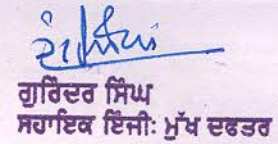 ਗੁਰਿੰਦਰ ਸਿੰਘ
ਸਹਾਇਕ ਇੰਜੀਃ ਮੁੱਖ ਦਫਤਰ